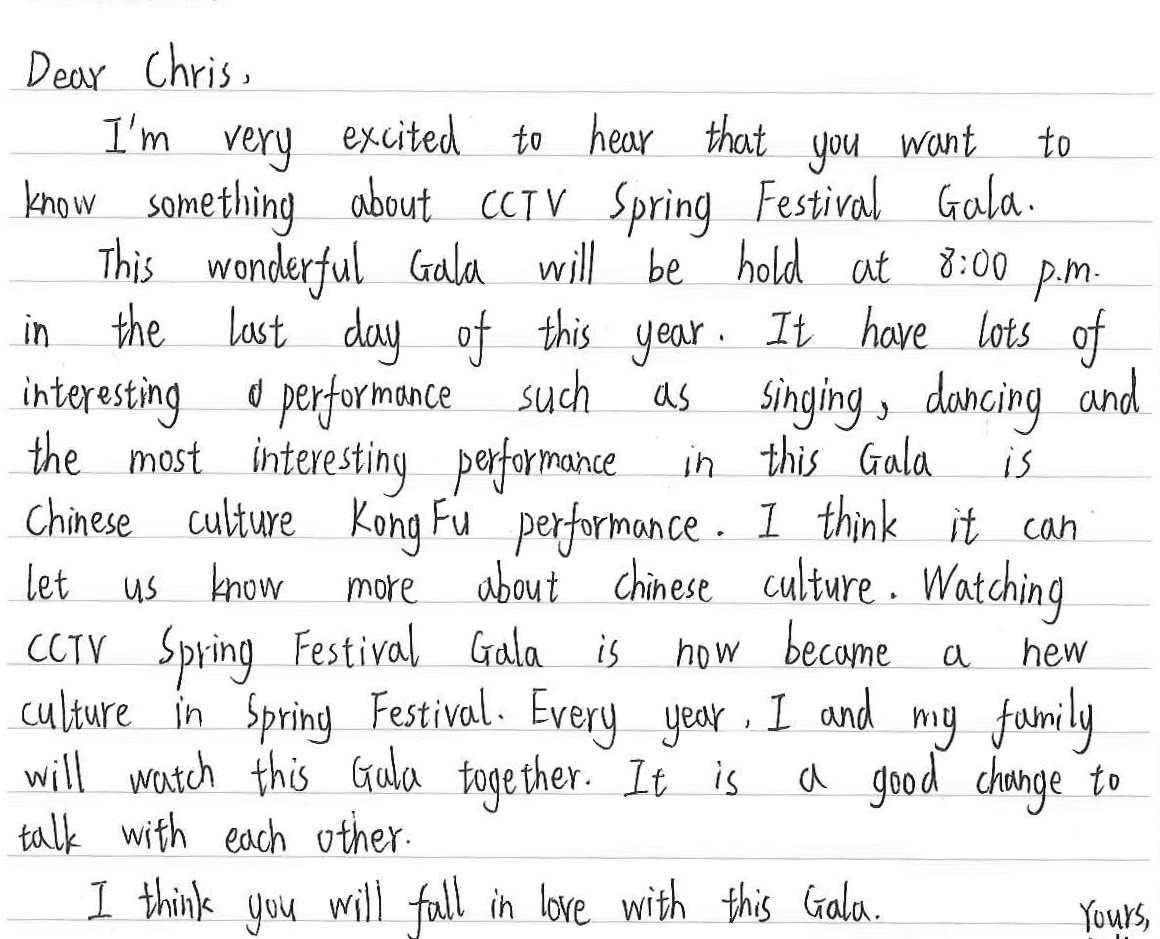 Dear Chris,
I'm very excited to hear that you want to
know something about CCTV Spring Festival Gala.
This wonderful Gala will be hold at 8:00 p.m.
in the last day of this year. It have lots of
interesting performance such as singing, dancing and
the most interesting performance in this Gala is
Chinese culture Kong Fu performance. I think it can
let us know more about Chinese culture. Watching
CCTV Spring Festival Gala is now became a new
culture in Spring Festival. Every year, I and my family
will watch this Gala together. It is a good change to
talk with each other.
I think you will fall in love with this Gala.
Yours,